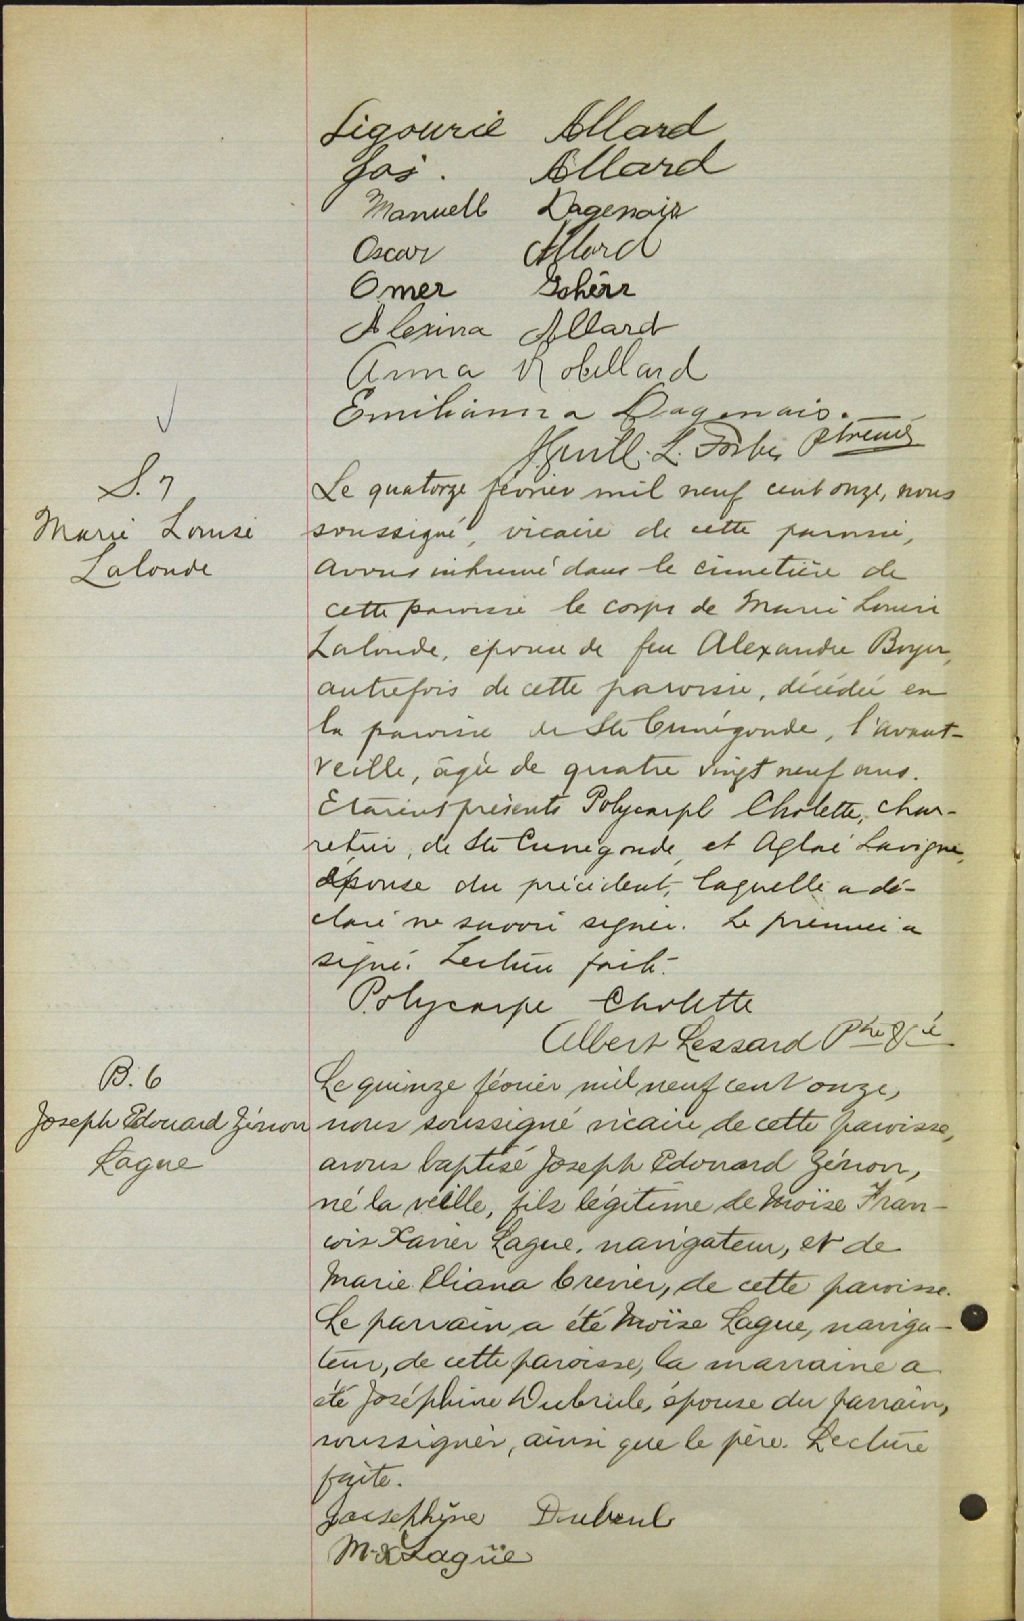 Ligourie Allard
Jos. Allard
Manuell Dagenais
Oscar Allard
Omer Gohier
Alexina Allard
Anna Robillard
Emilianna Dagenais.
Guill. L. Forbes Ptre curé
S. 7
Marie Louise
Lalonde
Le quatorze février mil neuf cent onze, nous
soussigné, vicaire de cette paroisse,
avons inhumé dans le cimetière de
cette paroisse le corps de Marie Louise
Lalonde, épouse de feu Alexandre Boyer,
autrefois de cette paroisse, décédée en
la paroisse de Ste Cunégonde, l'avant-
veille, âgée de quatre vingt neuf ans.
Etaient présents Polycarpe Cholette, char-
retier, de Ste Cunégonde, et Aglaé Lavigne,
épouse du précédent, laquelle a dé-
claré ne savoir signer. Le premier a
signé. Lecture faite.
Polycarpe Cholette
Albert Lessard Ptre Vic
B. 6
Joseph Edouard Zénon
Lague
Le quinze février mil neuf cent onze,
nous soussigné vicaire de cette paroisse,
avons baptisé Joseph Edouard Zénon,
né la veille, fils légitime de Moïse Fran-
cois Xavier Lague, navigateur, et de
Marie Eliana Crevier, de cette paroisse.
Le parrain a été Moïse Lague, naviga-
teur, de cette paroisse, la marraine a
été Joséphine Dubrule, épouse du parrain,
soussignés, ainsi que le père. Lecture
faite.
Josephine Dubrul
M. X Lagüe